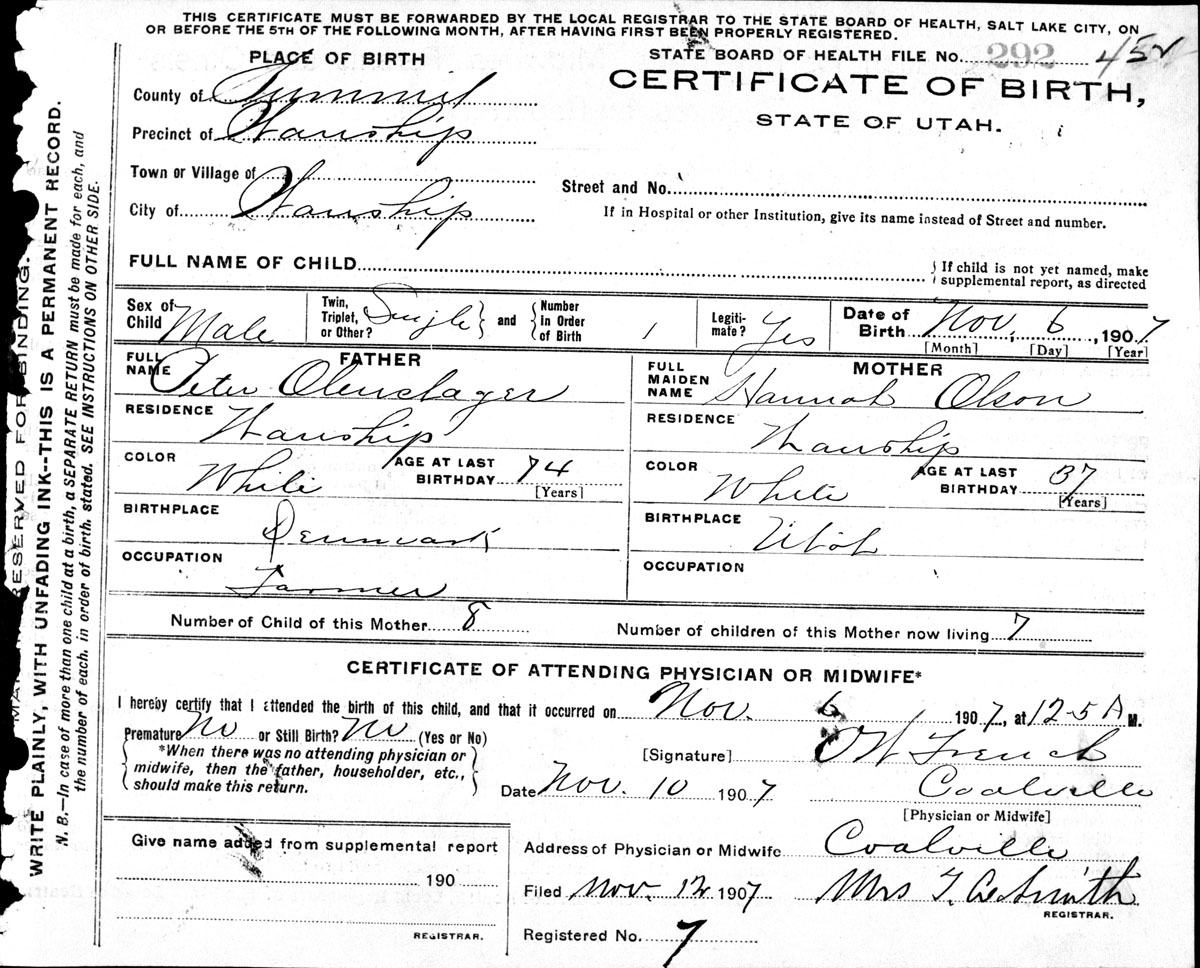 THIS CERTIFICATE MUST BE FORWARDED BY THE LOCAL REGISTRAR TO THE STATE BOARD OF HEALTH, SALT LAKE CITY, ON
OR BEFORE THE 5TH OF THE FOLLOWING MONTH, AFTER HAVING FIRST BEEN PROPERLY REGISTERED.
PLACE OF BIRTH
STATE BOARD OF HEALTH FILE No. 292
County of Summit
CERTIFICATE OF BIRTH,
STATE OF UTAH.
Precinct of Wanship
Town or Village of
Street and No.
City of Wanship
If in Hospital or other Institution, give its name instead of Street and number.
FULL NAME OF CHILD
If child is not yet named, make
supplemental report, as directed
Sex of Child Male
Twin, Triplet, or Other? Single and Number In Order of Birth 1
Legitimate? Yes
Date of Birth Nov. 6, 1907
[Month] [Day] [Year]
FATHER
FULL NAME Peter Olenslager
RESIDENCE Wanship
COLOR White
AGE AT LAST BIRTHDAY 74
[Years]
BIRTHPLACE Denmark
OCCUPATION Farmer
MOTHER
FULL MAIDEN NAME Hannah Olson
RESIDENCE Wanship
COLOR White
AGE AT LAST BIRTHDAY 37
[Years]
BIRTHPLACE Utah
OCCUPATION
Number of Child of this Mother 8
Number of children of this Mother now living 7
CERTIFICATE OF ATTENDING PHYSICIAN OR MIDWIFE*
I hereby certify that I attended the birth of this child, and that it occurred on Nov. 6, 1907, at 12-5 A M.
Premature No or Still Birth? No (Yes or No)
*When there was no attending physician or
midwife, then the father, householder, etc.,
should make this return.
[Signature] O W French
Date Nov. 10 1907 Coalville
[Physician or Midwife]
Give name added from supplemental report
190
REGISTRAR.
Address of Physician or Midwife Coalville
Filed Nov. 12 1907 Mrs Smith
REGISTRAR.
Registered No. 7
RESERVED FOR BINDING.
WRITE PLAINLY, WITH UNFADING INK--THIS IS A PERMANENT RECORD.
N. B.—In case of more than one child at a birth, a SEPARATE RETURN must be made for each, and
the number of each, in order of birth, stated. SEE INSTRUCTIONS ON OTHER SIDE.